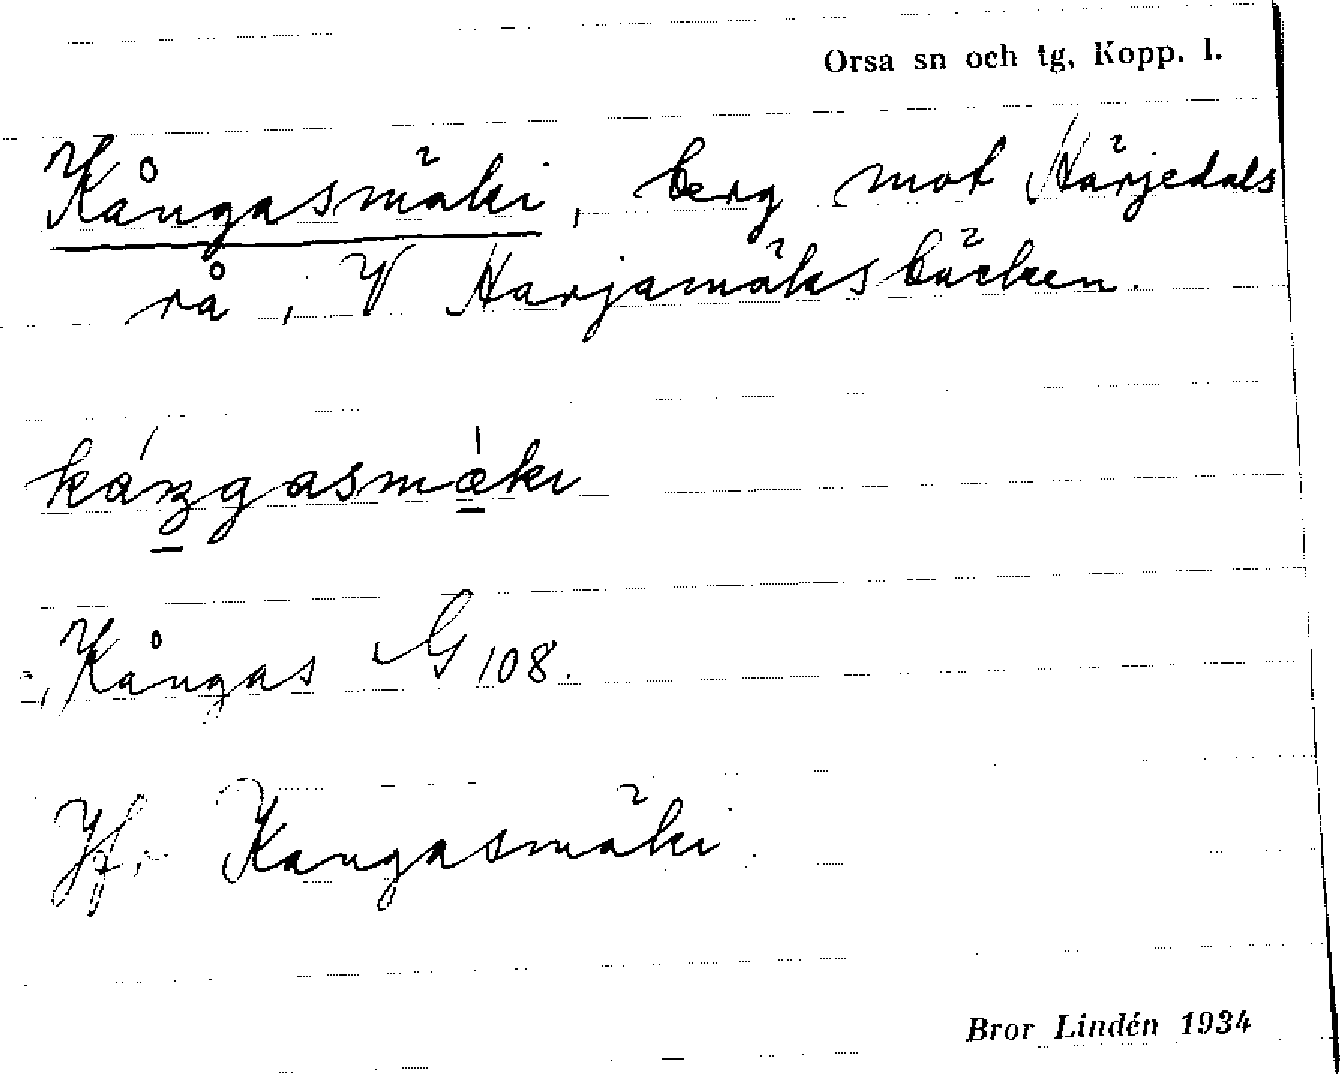 Orsa sn och tg, Kopp. l.
Kångasmäki, berg mot Härjedals
rå, V Harjamäksbäcken.
kángasmäki
Kångas G 108.
Jfr Kangasmäki.
Bror Lindén 1934